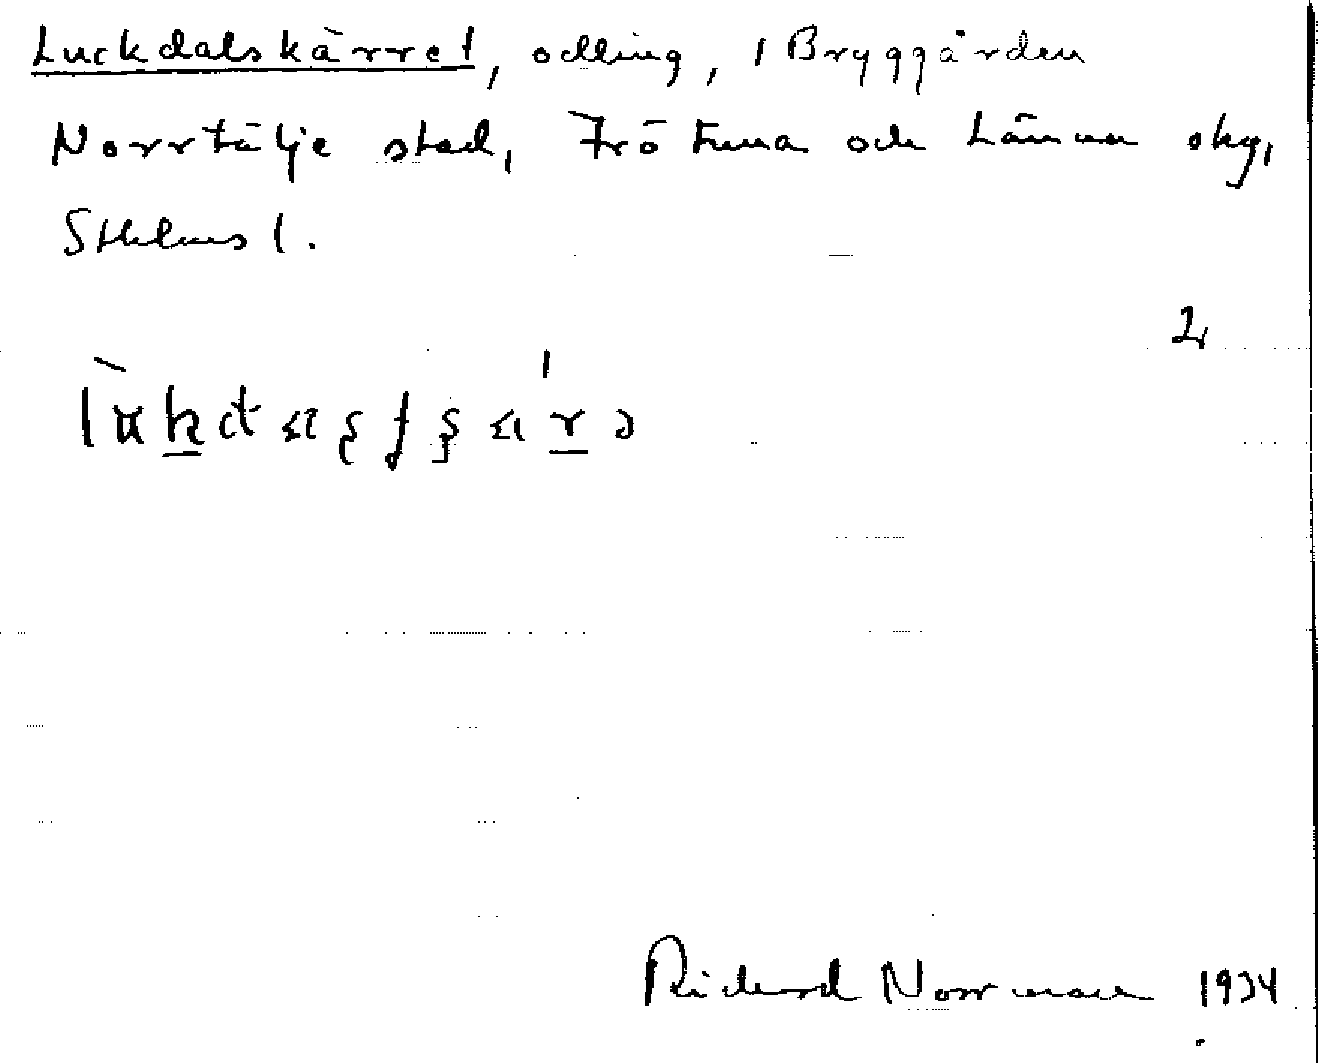 Luckdalskärret, odling, i Bryggården
Norrtälje stad, Frötuna och Länna skg,
Sthlms l.
2
Richard Norrman 1934